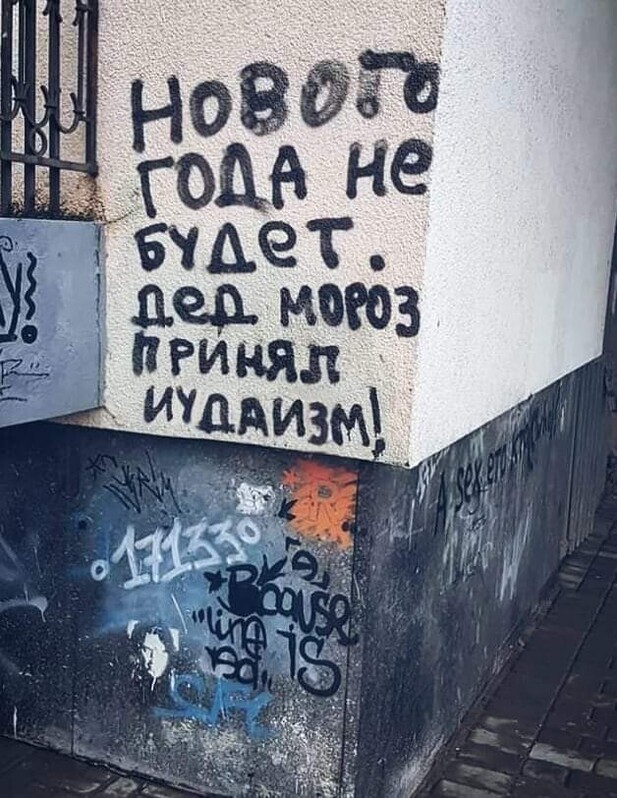 НОВОГО
ГОДА НЕ
БУДЕТ.
ДЕД МОРОЗ
ПРИНЯЛ
ИУДАИЗМ!
У!
171330
R
A SEX ЕТО
BECAUSE
IS